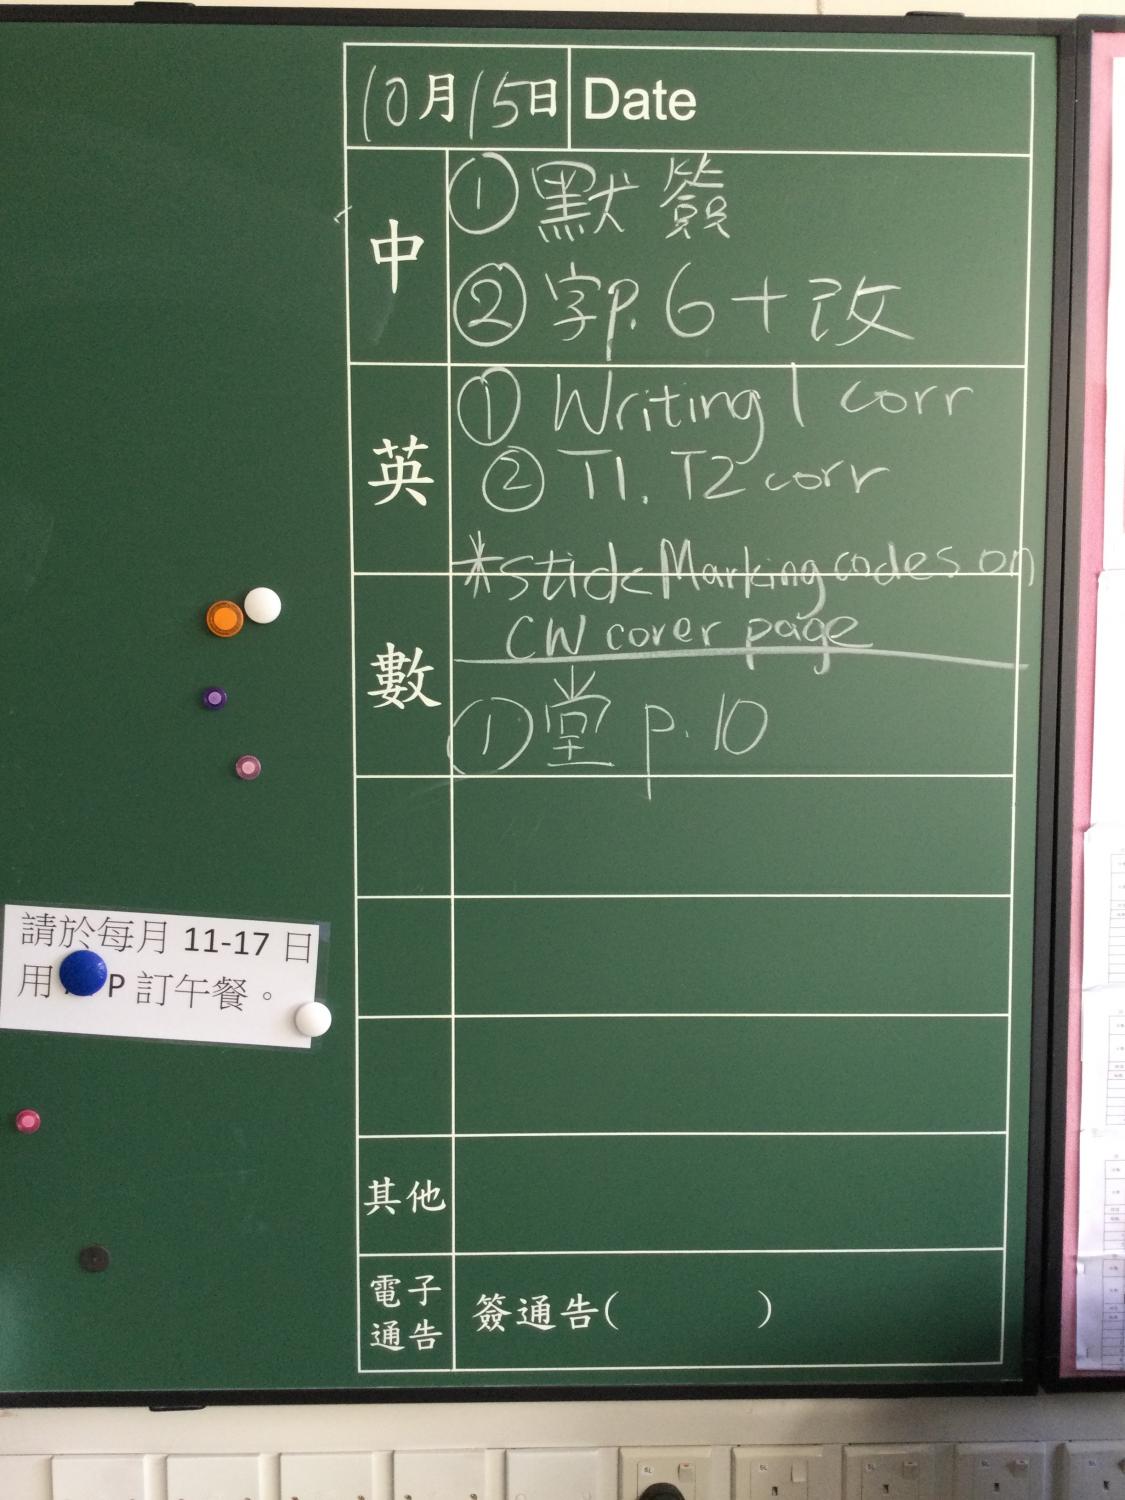 10月15日 Date
中
① 默 簽
② 字p.6+改
英
① Writing 1 corr
② T1, T2 corr
*stick Marking codes on
CW cover page
數
① 堂 p.10
請於每月 11-17 日
用 P 訂午餐。
其他
電子
通告
簽通告( )